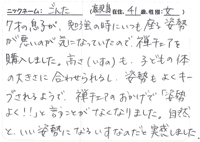 ニックネーム: らんた (愛媛県 在住, 41 歳, 性種: 女)
7才の息子が、勉強の時にいつも座る姿勢
が悪いのが気になっていたので、禅チェアを
購入しました。高さ(いすの)も、子どもの体
の大きさに合わせられるし、姿勢もよくキー
プされるようで、禅チェアのおかげで「姿勢
よく!!」と言うことがなくなりました。自然
と、いい姿勢になるいすなのだと実感しました。